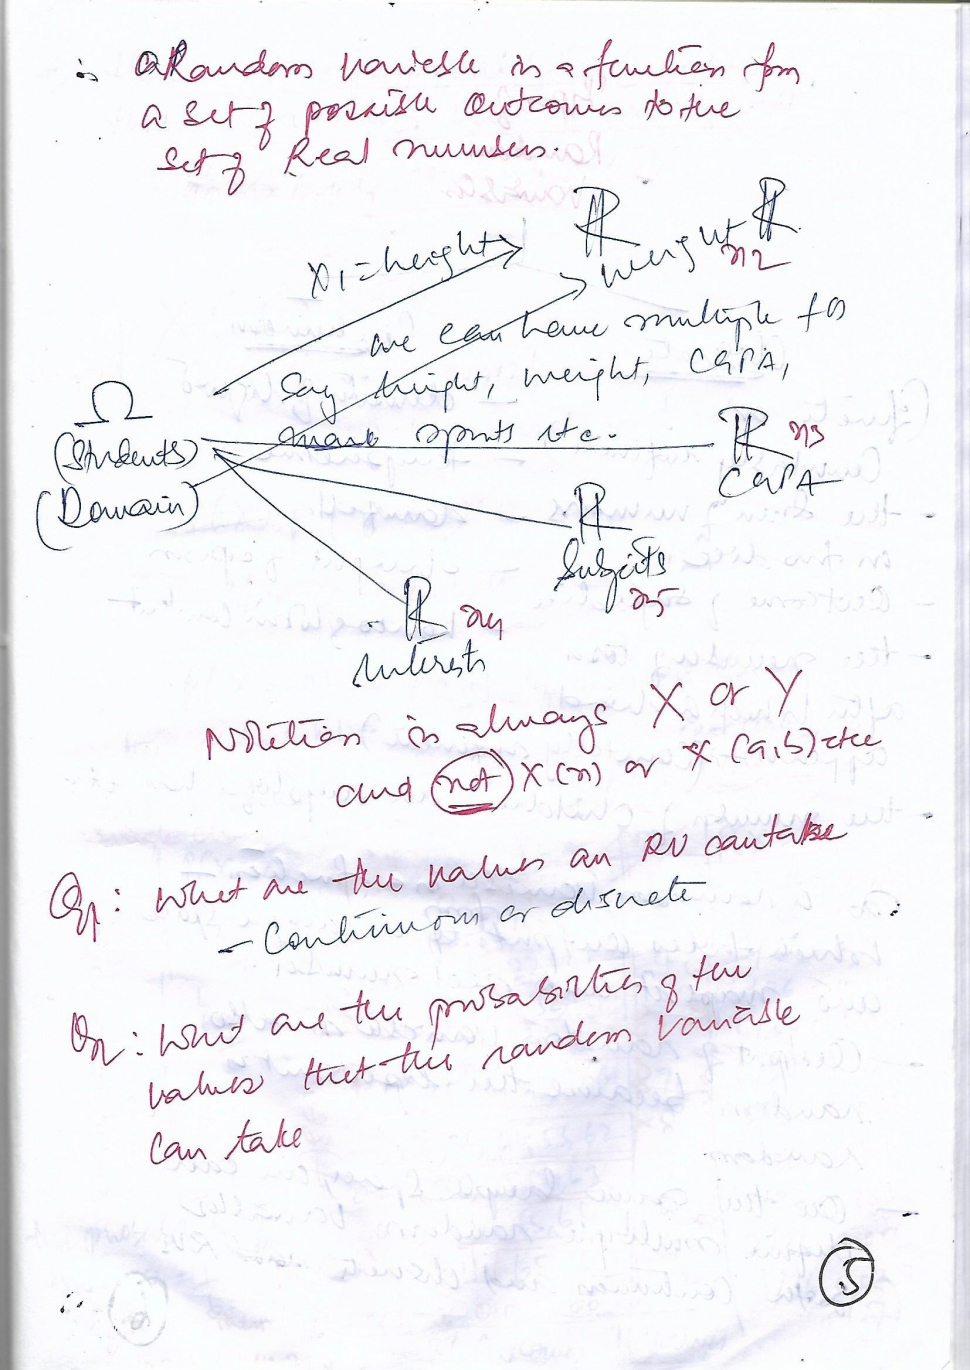 ∴ a Random variable is a function from
a set of possible outcomes to the
set of Real numbers.
ℝ
weight ℝ
x1 = height
x2
we can have multiple fns
say height, weight, CGPA,
marks sports etc.
Ω
(Students)
(Domain)
ℝ x3
CGPA
ℝ
Subjects
x5
ℝ x4
Interests
Notation is always X or Y
and not X(x) or X(a,b) etc
Q1: What are the values an RV can take
- Continuous or discrete
Q2: What are the probabilities of the
values that the random variable
can take
5